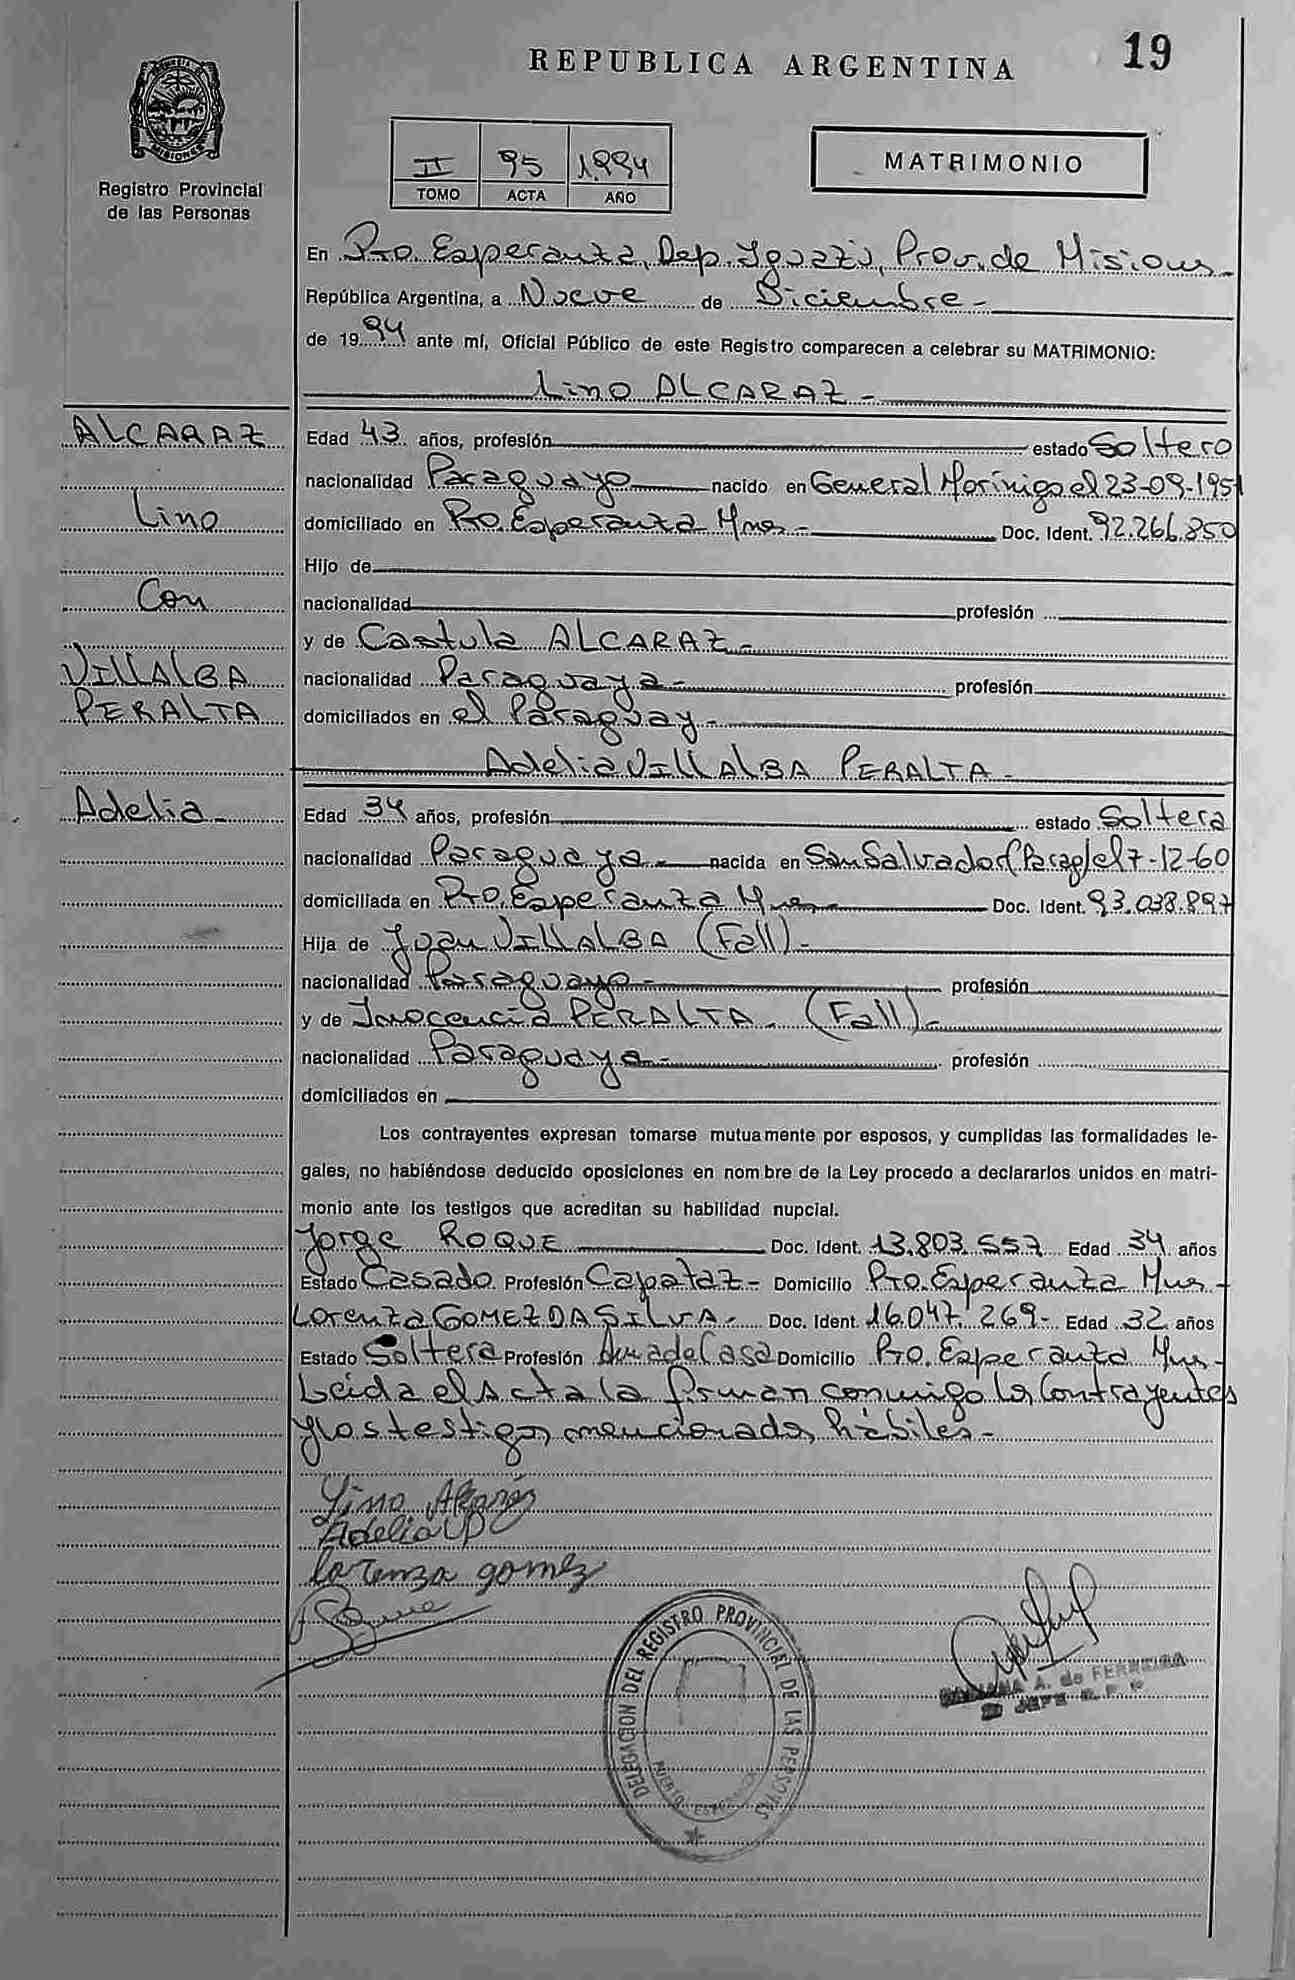 REPUBLICA ARGENTINA
19
MISIONES
Registro Provincial
de las Personas
II 95 1.994
TOMO ACTA AÑO
MATRIMONIO
En Pto. Esperanza, Dep. Iguazú, Prov. de Misiones-
República Argentina, a Nueve de Diciembre-
de 1994 ante mí, Oficial Público de este Registro comparecen a celebrar su MATRIMONIO:
Lino ALCARAZ-
ALCARAZ
Lino
Con
VILLALBA
PERALTA
Adelia-
Edad 43 años, profesión estado Soltero
nacionalidad Paraguayo nacido en General Morinigo el 23-09-1951
domiciliado en Pto. Esperanza Mnes- Doc. Ident. 92.266.850
Hijo de
nacionalidad profesión
y de Castula ALCARAZ-
nacionalidad Paraguaya- profesión
domiciliados en el Paraguay-
Adelia VILLALBA PERALTA-
Edad 34 años, profesión estado Soltera
nacionalidad Paraguaya- nacida en San Salvador (Parag) el 7-12-60
domiciliada en Pto. Esperanza Mnes- Doc. Ident. 93.038.897
Hija de Juan VILLALBA (Fall)-
nacionalidad Paraguayo- profesión
y de Inocencia PERALTA- (Fall)-
nacionalidad Paraguaya- profesión
domiciliados en
Los contrayentes expresan tomarse mutuamente por esposos, y cumplidas las formalidades le-
gales, no habiéndose deducido oposiciones en nombre de la Ley procedo a declararlos unidos en matri-
monio ante los testigos que acreditan su habilidad nupcial.
Jorge ROQUE Doc. Ident. 13.803.557 Edad 34 años
Estado Casado Profesión Capataz- Domicilio Pto. Esperanza Mnes-
Lorenza GOMEZ DA SILVA- Doc. Ident. 16.047.269- Edad 32 años
Estado Soltera Profesión Ama de Casa Domicilio Pto. Esperanza Mnes-
Leida el Acta la firman conmigo los Contrayentes
y los testigos mencionados hábiles-
Lino Alcaráz
Adelia VP
Lorenza gomez
DELEGACION DEL REGISTRO PROVINCIAL DE LAS PERSONAS
PUERTO ESPERANZA
A. de FERREIRA
JEFE R. P. P.